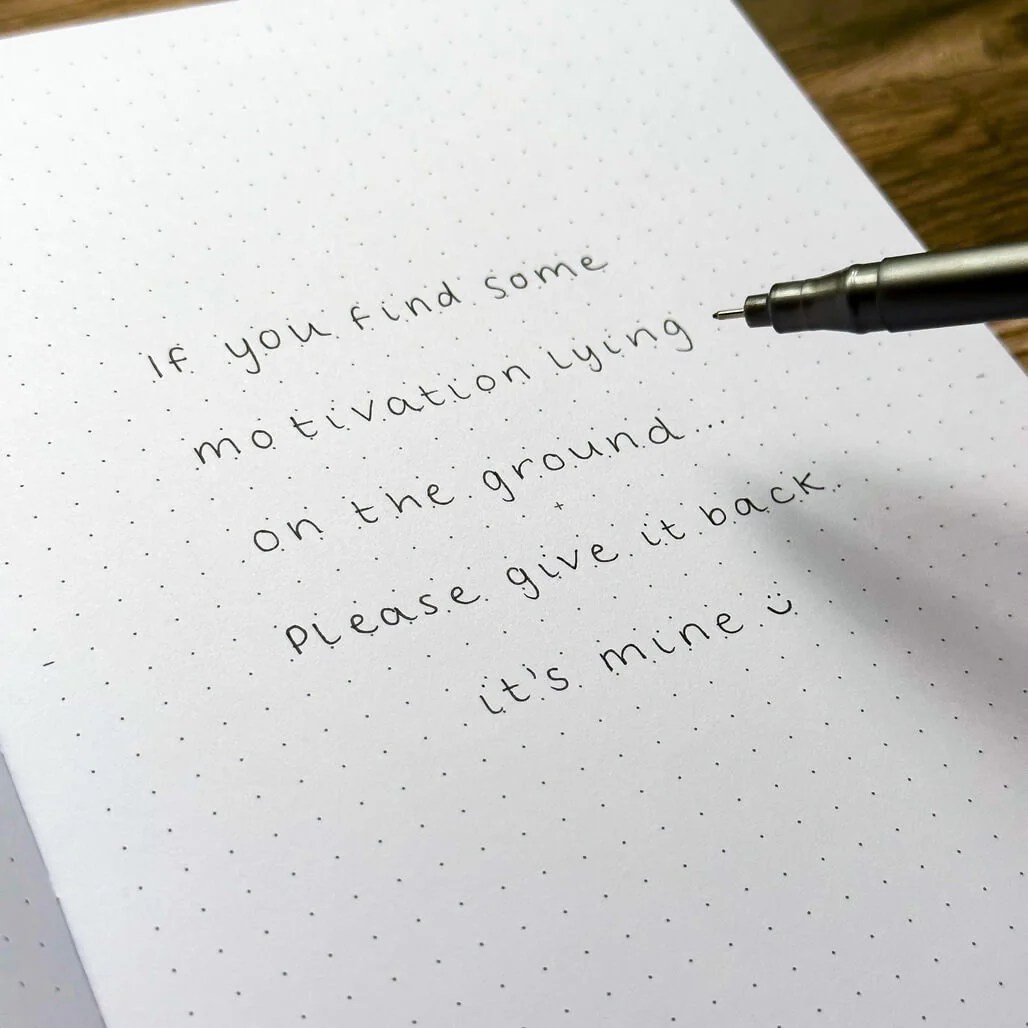 If you find some
motivation lying
on the ground...
Please give it back
it's mine ü